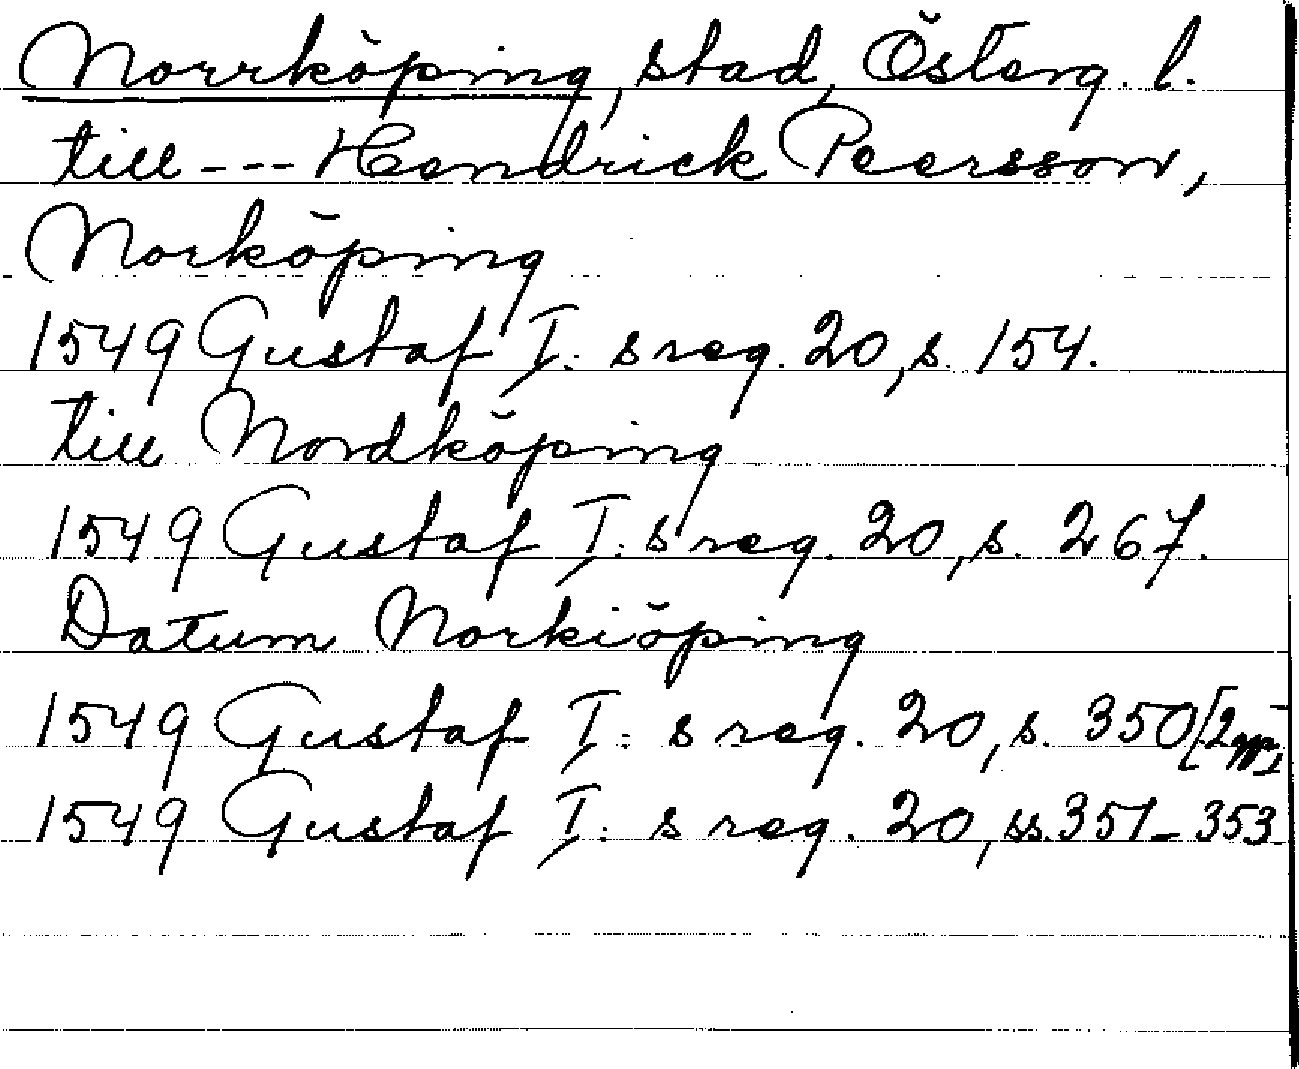 Norrköping, stad, Österg. l.
till --- Hendrick Peersson,
Norköping
1549 Gustaf I:s reg. 20, s. 154.
till Nordköping
1549 Gustaf I:s reg. 20, s. 267.
Datum Norkiöping
1549 Gustaf I:s reg. 20, s. 350 [2 ggr]
1549 Gustaf I:s reg. 20, ss. 351-353